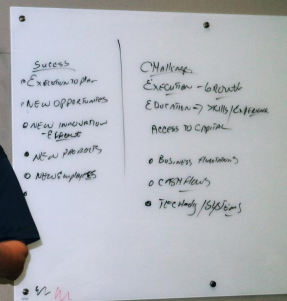 Sucess
Execution to Plan
New Opportunities
New Innovation
- Effort
New Products
New Employees
Challenge
Execution - Growth
Education → Skills/Experience
Access to Capital
Business
Cash Flows
/Systems